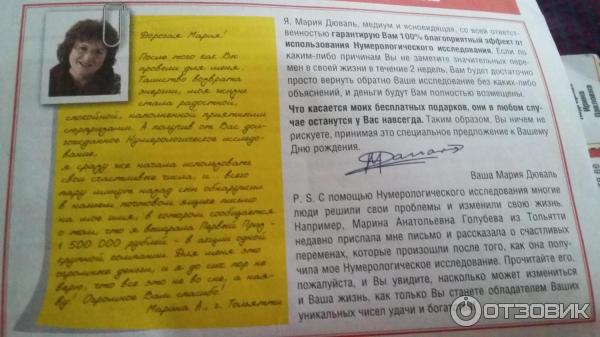 Дорогая Мария!
После того как Вы
провели для меня
Таинство возврата
энергии, моя жизнь
стала радостной,
спокойной, наполненной приятными
сюрпризами. А получив от Вас дол-
гожданное Нумерологическое исследо-
вание,
я сразу же начала использовать
свои счастливые числа, и ... всего
пару минут назад сын обнаружил
в нашем почтовом ящике письмо
на мое имя, в котором сообщается
о том, что я выиграла Первый Приз -
1 500 000 рублей - в акции одной
крупной компании. Для меня это
огромные деньги, и я до сих пор не
верю, что все это не во сне, а ная-
ву! Огромное Вам спасибо!
Марина А., г. Тольятти
Я, Мария Дюваль, медиум и ясновидящая, со всей ответст-
венностью гарантирую Вам 100% благоприятный эффект от
использования Нумерологического исследования. Если по
каким-либо причинам Вы не заметите значительных пере-
мен в своей жизни в течение 2 недель, Вам будет достаточно
просто вернуть обратно Ваше исследование без каких-либо
объяснений, и деньги будут Вам полностью возмещены.
Что касается моих бесплатных подарков, они в любом слу-
чае останутся у Вас навсегда. Таким образом, Вы ничем не
рискуете, принимая это специальное предложение к Вашему
Дню рождения.
Ваша Мария Дюваль
P. S. С помощью Нумерологического исследования многие
люди решили свои проблемы и изменили свою жизнь.
Например, Марина Анатольевна Голубева из Тольятти
недавно прислала мне письмо и рассказала о счастливых
переменах, которые произошли после того, как она полу-
чила мое Нумерологическое исследование. Прочитайте его,
пожалуйста, и Вы увидите, насколько может измениться
и Ваша жизнь, как только Вы станете обладателем Ваших
уникальных чисел удачи и богат
ОТЗОВИК